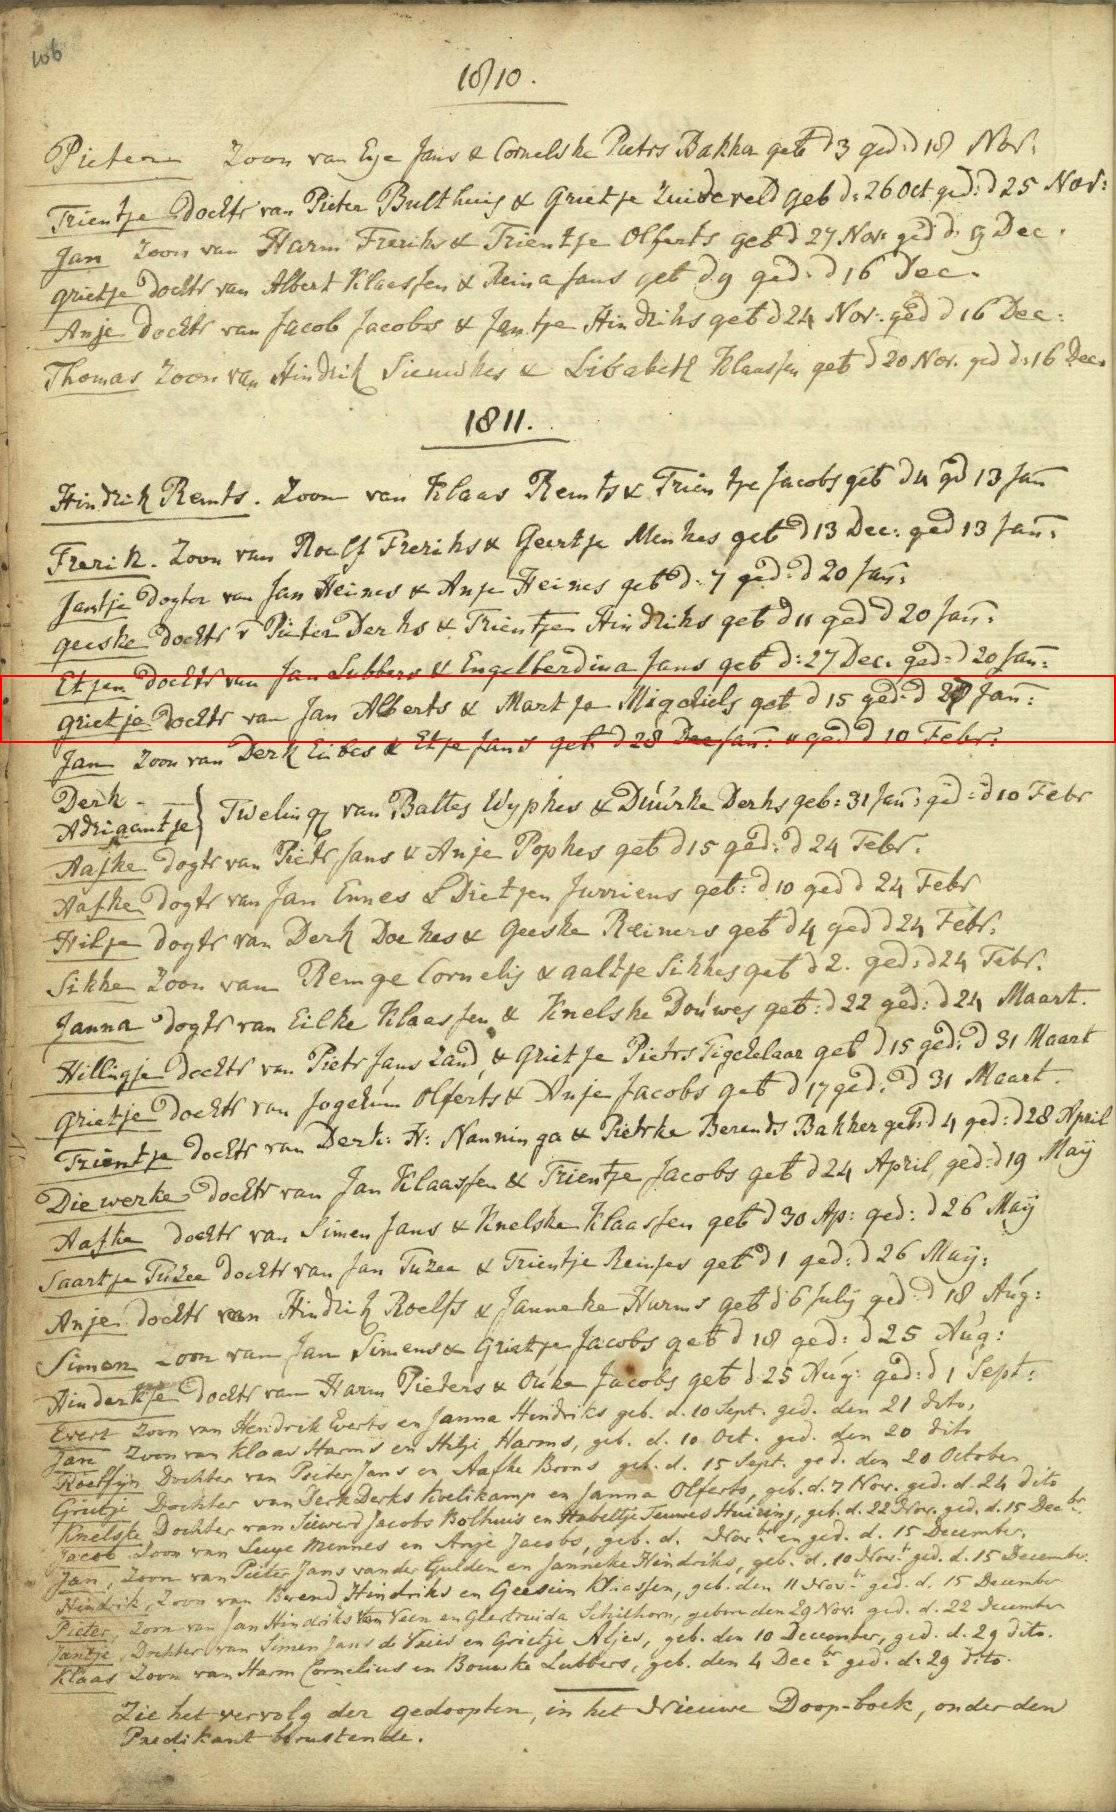 106
1810.
Pieter Zoon van Eye Jans & Cornelske Pieters Bakker geb d 3 ged: d 18 Nov:
Trientje dochtr van Pieter Bulthuis & Grietje Zuideveld geb d: 26 Oct ged: d 25 Nov:
Jan Zoon van Harm Freriks & Trientje Olferts geb d 27 Nov. ged d. 9 Dec.
Grietje dochtr van Albert Klaassen & Reina Jans geb d 9 ged: d 16 Dec.
Anje dochtr van Jacob Jacobs & Jantje Hindriks geb d 24 Nov. ged d 16 Dec:
Thomas Zoon van Hindrik Sieuwkes & Lisabeth Klaassen geb d 20 Nov. ged d: 16 Dec.
1811.
Hindrik Remts. Zoon van Klaas Remts & Trientje Jacobs geb d 4 gd 13 Jan
Frerik. Zoon van Roelf Freriks & Geertje Menkes geb d 13 Dec: ged 13 Jan:
Jantje dogter van Jan Heines & Anje Heines geb d. 7 ged: d 20 Jan:
Geeske dochtr v Pieter Derks & Trientje Hindriks geb d 11 ged d 20 Jan:
Etjen dochtr van Jan Lubbers & Engelberdina Jans geb d: 27 Dec. ged: d 20 Jan:
Grietje dochtr van Jan Alberts & Martje Migchiels geb d 15 ged: d Jan:
Jan Zoon van Derk Eibes & Etje Jans geb d 28 Dec Jan: & ged d 10 Febr:
Derk
Adrigantje } Tweling van Baltes Wyphes & Duurke Derks geb: 31 Jan: ged: d 10 Febr
Aafke dogtr van Pietr Jans & Anje Pophes geb d 15 ged: d 24 Febr.
Aafke dogtr van Jan Ennes & Dietjen Jurriens geb: d 10 ged d 24 Febr
Hilje dogtr van Derk Doekes & Geeske Reiners geb d 4 ged d 24 Febr.
Sikke Zoon van Remge Cornelis & aaltje Sikkes geb d 2. ged: d 24 Febr.
Janna dogtr van Eilke Klaassen & Knelske Douwes geb: d 22 ged: d 24 Maart.
Hilligje dochtr van Pietr Jans Land, & Grietje Pietrs Tigchelaar geb d 15 ged: d 31 Maart
Grietje dochtr van Jogchum Olferts & Anje Jacobs geb d 17 ged: d 31 Maart.
Trientje dochtr van Derk: H: Nanninga & Pietrke Berends Bakker geb: d 4 ged: d 28 April
Diewerke dochtr van Jan Klaassen & Trientje Jacobs geb d 24 April, ged: d 19 Maÿ
Aafke dochtr van Simen Jans & Knelske Klaassen geb d 30 Ap: ged: d 26 Maÿ
Saartje Tuzee dochtr van Jan Tuzee & Trientje Reinjes geb d 1 ged: d 26 Maÿ:
Anje dochtr van Hindrik Roelfs & Janneke Harms geb d 6 Julÿ ged: d 18 Aug:
Simen Zoon van Jan Simens & Grietje Jacobs geb d 18 ged: d 25 Aug:
Hinderkje dochtr van Harm Pieters & Ouke Jacobs geb d 25 Aug: ged: d 1 Sept:
Evert Zoon van Hendrik Everts en Janna Hindriks geb. d. 10 Sept. ged. den 21 dito,
Jan Zoon van Klaas Harms en Hilje Harms, geb. d. 10 Oct. ged. den 20 dito
Roelfijn Dochter van Pieter Jans en Aafke Brons geb. d. 15 Sept. ged. den 20 October
Grietje Dochter van Derk Derks Koelikamp en Janna Olferts, geb. d. 7 Nov. ged. d. 24 dito
Knelske Dochter van Siewerd Jacobs Bolthuis en Habeltje Teunwes Huizing, geb. d. 22 Nov. ged. d. 15 Decbr.
Jacob Zoon van Luye Mennes en Anje Jacobs, geb. d. Novbr en ged. d. 15 December.
Jan, Zoon van Pieter Jans van der Gulden en Janneke Hindriks, geb. d. 10 Novbr ged. d. 15 December.
Hindrik, Zoon van Berend Hindriks en Geesien Klaassen, geb. den 11 Novbr ged. d. 15 December
Pieter, Zoon van Jan Hindriks van Veen en Geertruida Schilhorn, geboren den 29 Nov. ged. d. 22 December
Jantje, Dochter van Simen Jans de Vries en Grietje Aljes, geb. den 10 December, ged. d. 29 dito.
Klaas Zoon van Harm Cornelius en Bouwke Lubbers, geb. den 4 Decbr. ged. d. 29 dito.
Zie het vervolg der gedoopten, in het Nieuwe Doop-boek, onder den
Predikant berustende.